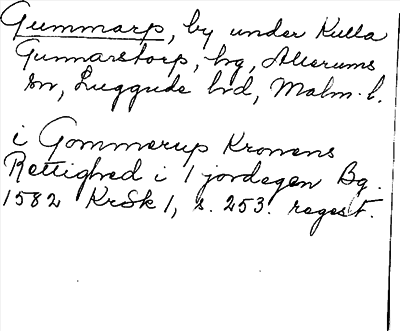 Gummarp, by under Kulla
Gunnarstorp, hg, Allerums
sn, Luggude hd, Malm. l.
i Gommerup Kronens
Rettighed i 1 jordegen Bg.
1582 KrSk 1, s. 253. regest.